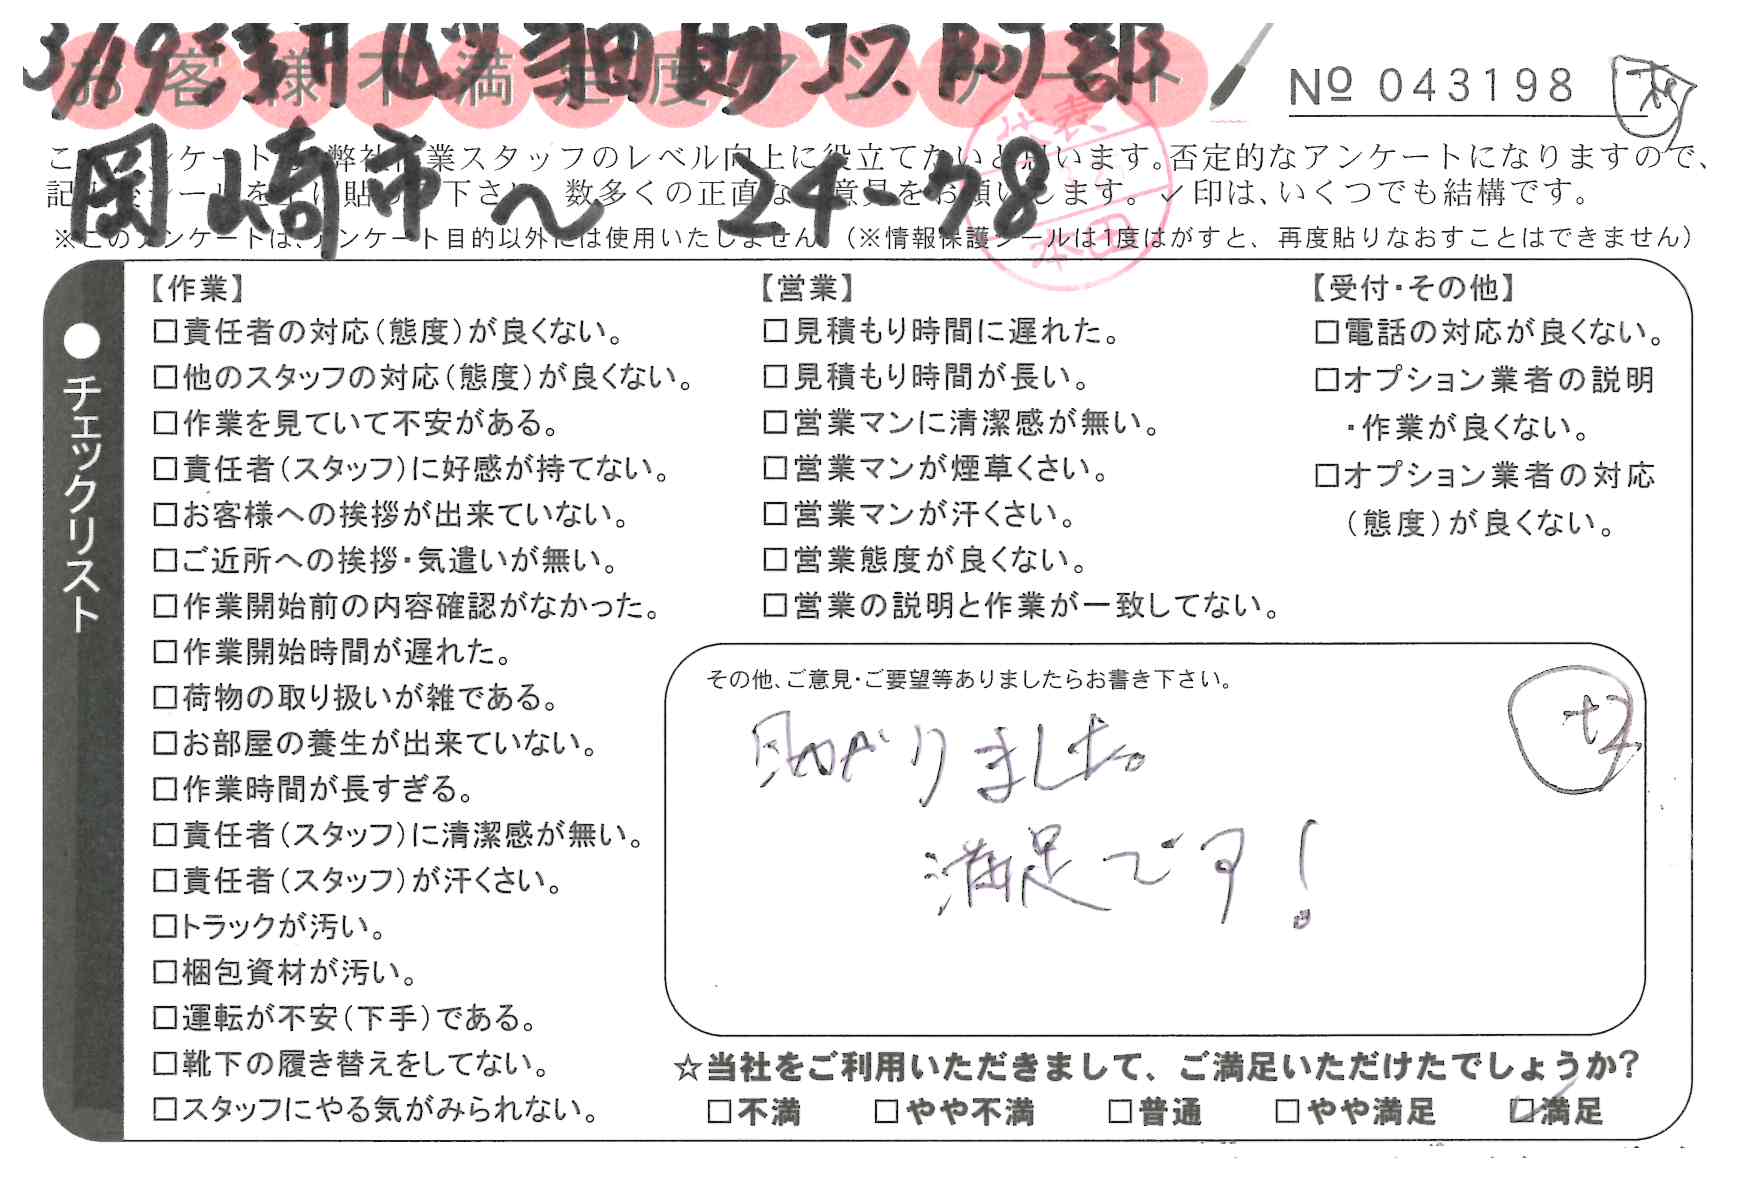 お客様不満足度アンケート
3/19 阿部
No 043198
このアンケートは、弊社作業スタッフのレベル向上に役立てたいと思います。否定的なアンケートになりますので、
記入後シールを上に貼って下さい。数多くの正直な御意見をお願いします。✓印は、いくつでも結構です。
岡崎市〜 24-78
代表
本田
※このアンケートは、アンケート目的以外には使用いたしません。(※情報保護シールは1度はがすと、再度貼りなおすことはできません)
●チェックリスト
【作業】
□責任者の対応(態度)が良くない。
□他のスタッフの対応(態度)が良くない。
□作業を見ていて不安がある。
□責任者(スタッフ)に好感が持てない。
□お客様への挨拶が出来ていない。
□ご近所への挨拶・気遣いが無い。
□作業開始前の内容確認がなかった。
□作業開始時間が遅れた。
□荷物の取り扱いが雑である。
□お部屋の養生が出来ていない。
□作業時間が長すぎる。
□責任者(スタッフ)に清潔感が無い。
□責任者(スタッフ)が汗くさい。
□トラックが汚い。
□梱包資材が汚い。
□運転が不安(下手)である。
□靴下の履き替えをしてない。
□スタッフにやる気がみられない。
【営業】
□見積もり時間に遅れた。
□見積もり時間が長い。
□営業マンに清潔感が無い。
□営業マンが煙草くさい。
□営業マンが汗くさい。
□営業態度が良くない。
□営業の説明と作業が一致してない。
【受付・その他】
□電話の対応が良くない。
□オプション業者の説明
・作業が良くない。
□オプション業者の対応
(態度)が良くない。
その他、ご意見・ご要望等ありましたらお書き下さい。
助かりました。
満足です!
☆当社をご利用いただきまして、ご満足いただけたでしょうか?
□不満 □やや不満 □普通 □やや満足 ☑満足